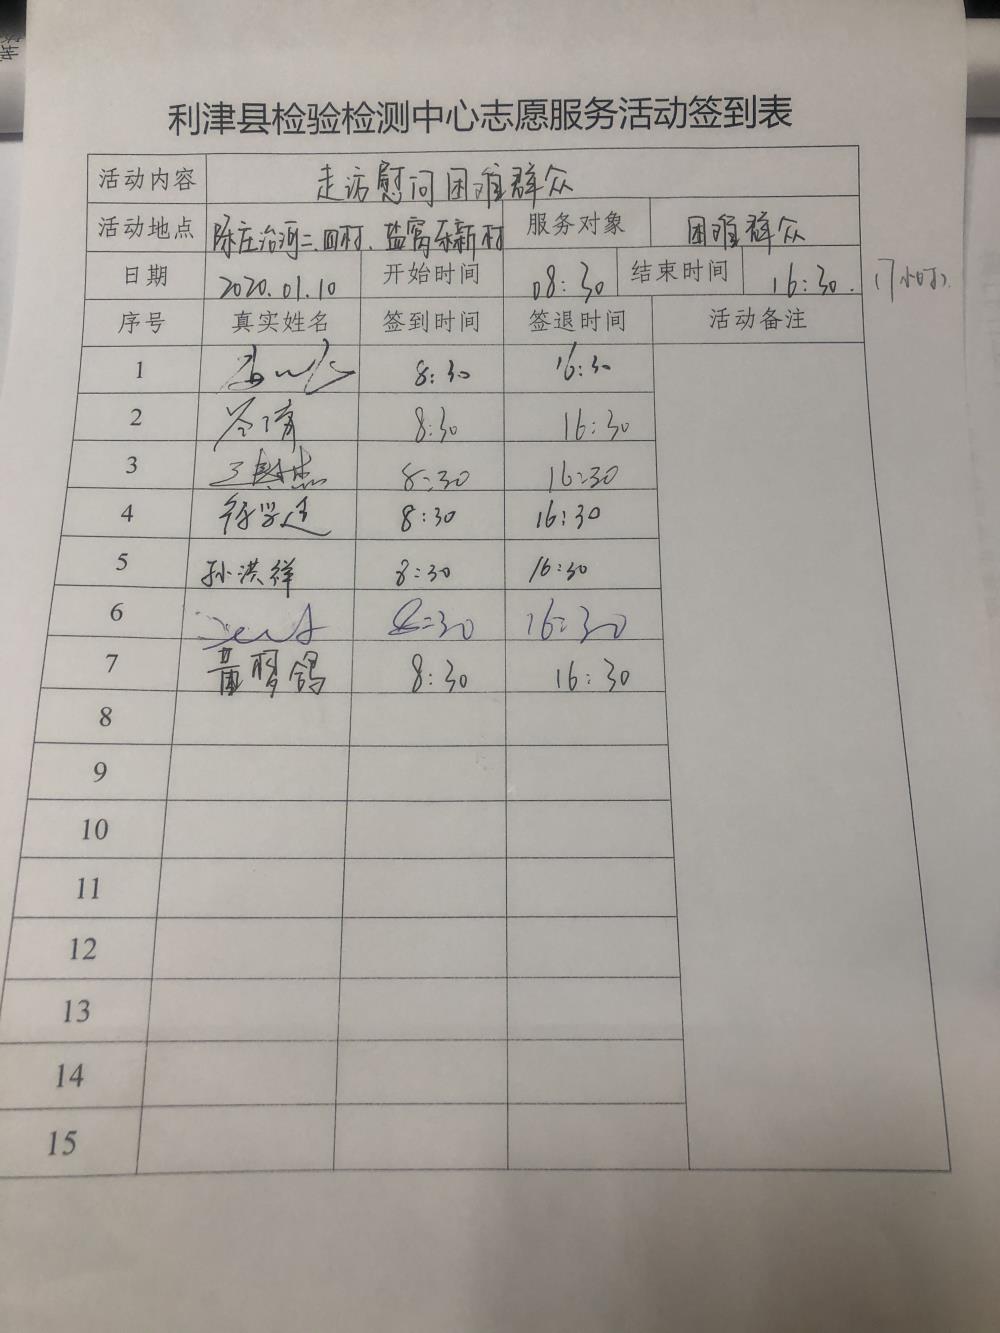 利津县检验检测中心志愿服务活动签到表
活动内容 走访慰问困难群众
活动地点 陈庄治河二、四村、盐窝新村 服务对象 困难群众
日期 2020.01.10 开始时间 08:30 结束时间 16:30. (7小时)
序号 真实姓名 签到时间 签退时间 活动备注
1 8:30 16:30
2 8:30 16:30
3 8:30 16:30
4 8:30 16:30
5 孙洪祥 8:30 16:30
6 8:30 16:30
7 8:30 16:30
8
9
10
11
12
13
14
15